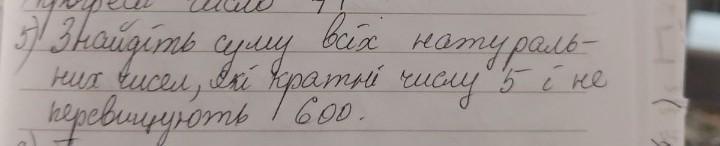 прогресії число 41
5) Знайдіть суму всіх натураль-
них чисел, які кратні числу 5 і не
перевищують 600.